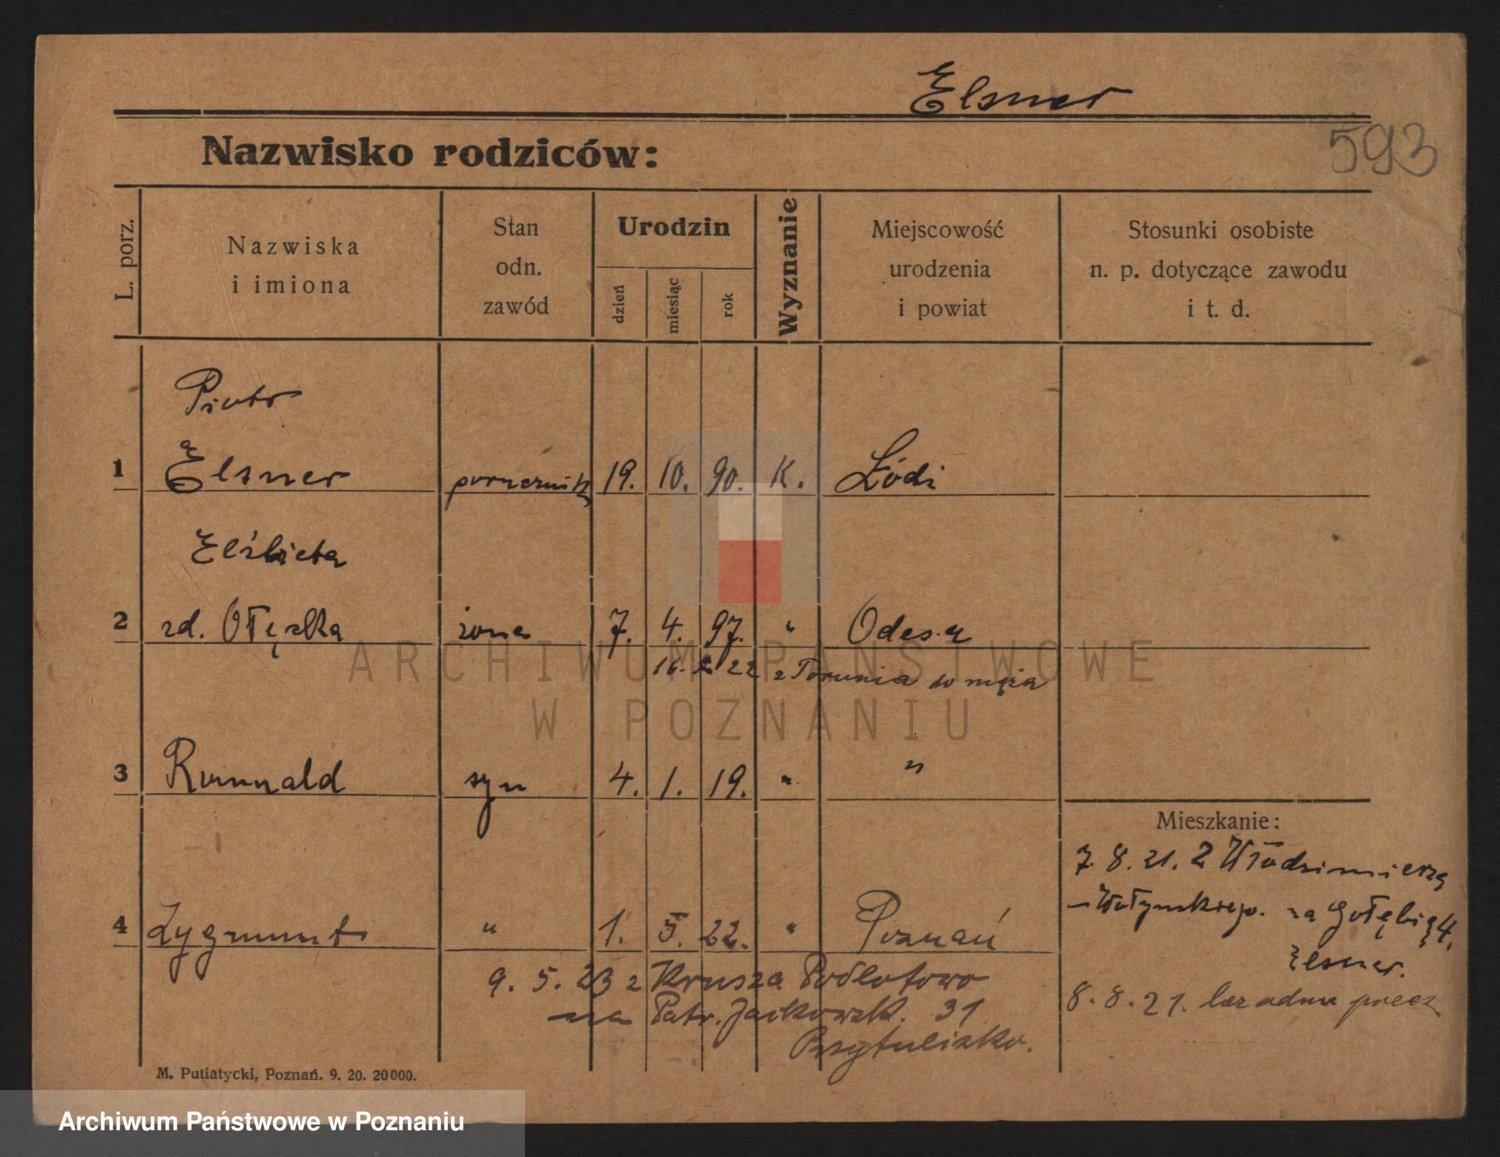 Elsner
593
Nazwisko rodziców:
L. porz.
Nazwiska
i imiona
Stan
odn.
zawód
Urodzin
dzień
miesiąc
rok
Wyznanie
Miejscowość
urodzenia
i powiat
Stosunki osobiste
n. p. dotyczące zawodu
i t. d.
Piotr
1 Elsner porucznik 19. 10. 90. K. Łódź
Elżbieta
2 zd. żona 7. 4. 97. " Odesa
16. 2 22 z Torunia do męża
3 Romuald syn 4. 1. 19. " "
Mieszkanie:
7. 8. 21. Z Włodzimierza
Wołyńskiego. na Gołębią 4.
Elsner.
8. 8. 21. bez adnu precz
4 Zygmunt " 1. 5. 22. " Poznań
9. 5. 23 z Krusza Podlotowo
na Patr. Jackowsk. 31
Przytulisko.
M. Putiatycki, Poznań. 9. 20. 20000.
ARCHIWUM PAŃSTWOWE
W POZNANIU
Archiwum Państwowe w Poznaniu